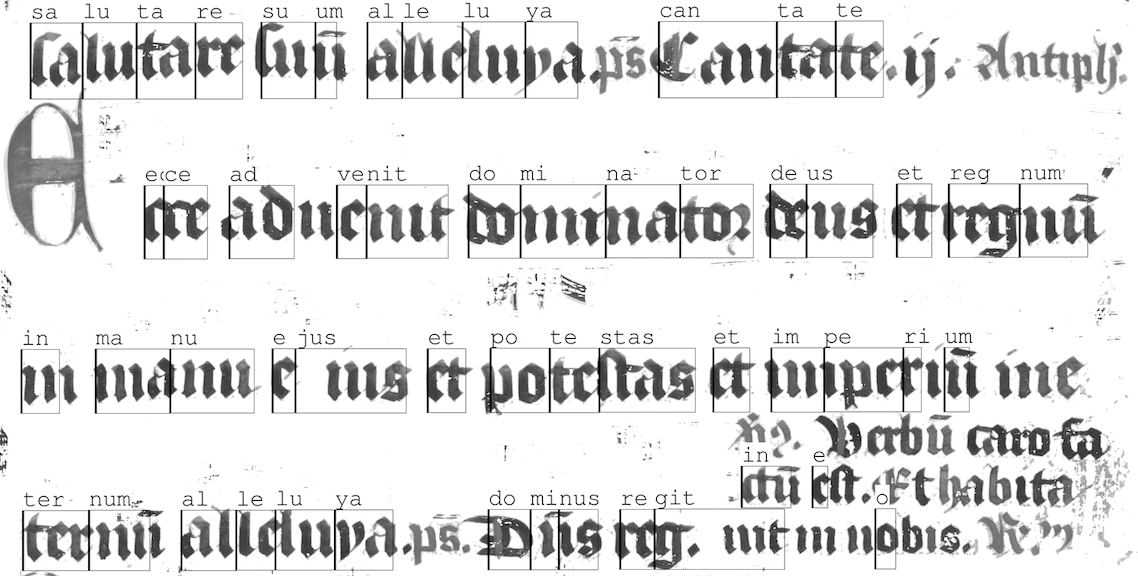 sa lu ta re su um al le lu ya can ta te
salutare suū alleluya. p̄s Cantate. ij. Antiph.
ec ce ad venit do mi na- tor de us et reg num
Ecce aduenit dominator deus et regnū
in ma nu e jus et po te stas et im pe ri um
in manu eius et potestas et imperiū in e
Verbū caro fa
in e
ctū est. Et habita
ter- num al le lu ya do minus re git o
ternū alleluya. ps. Dn̄s reg. uit in nobis.